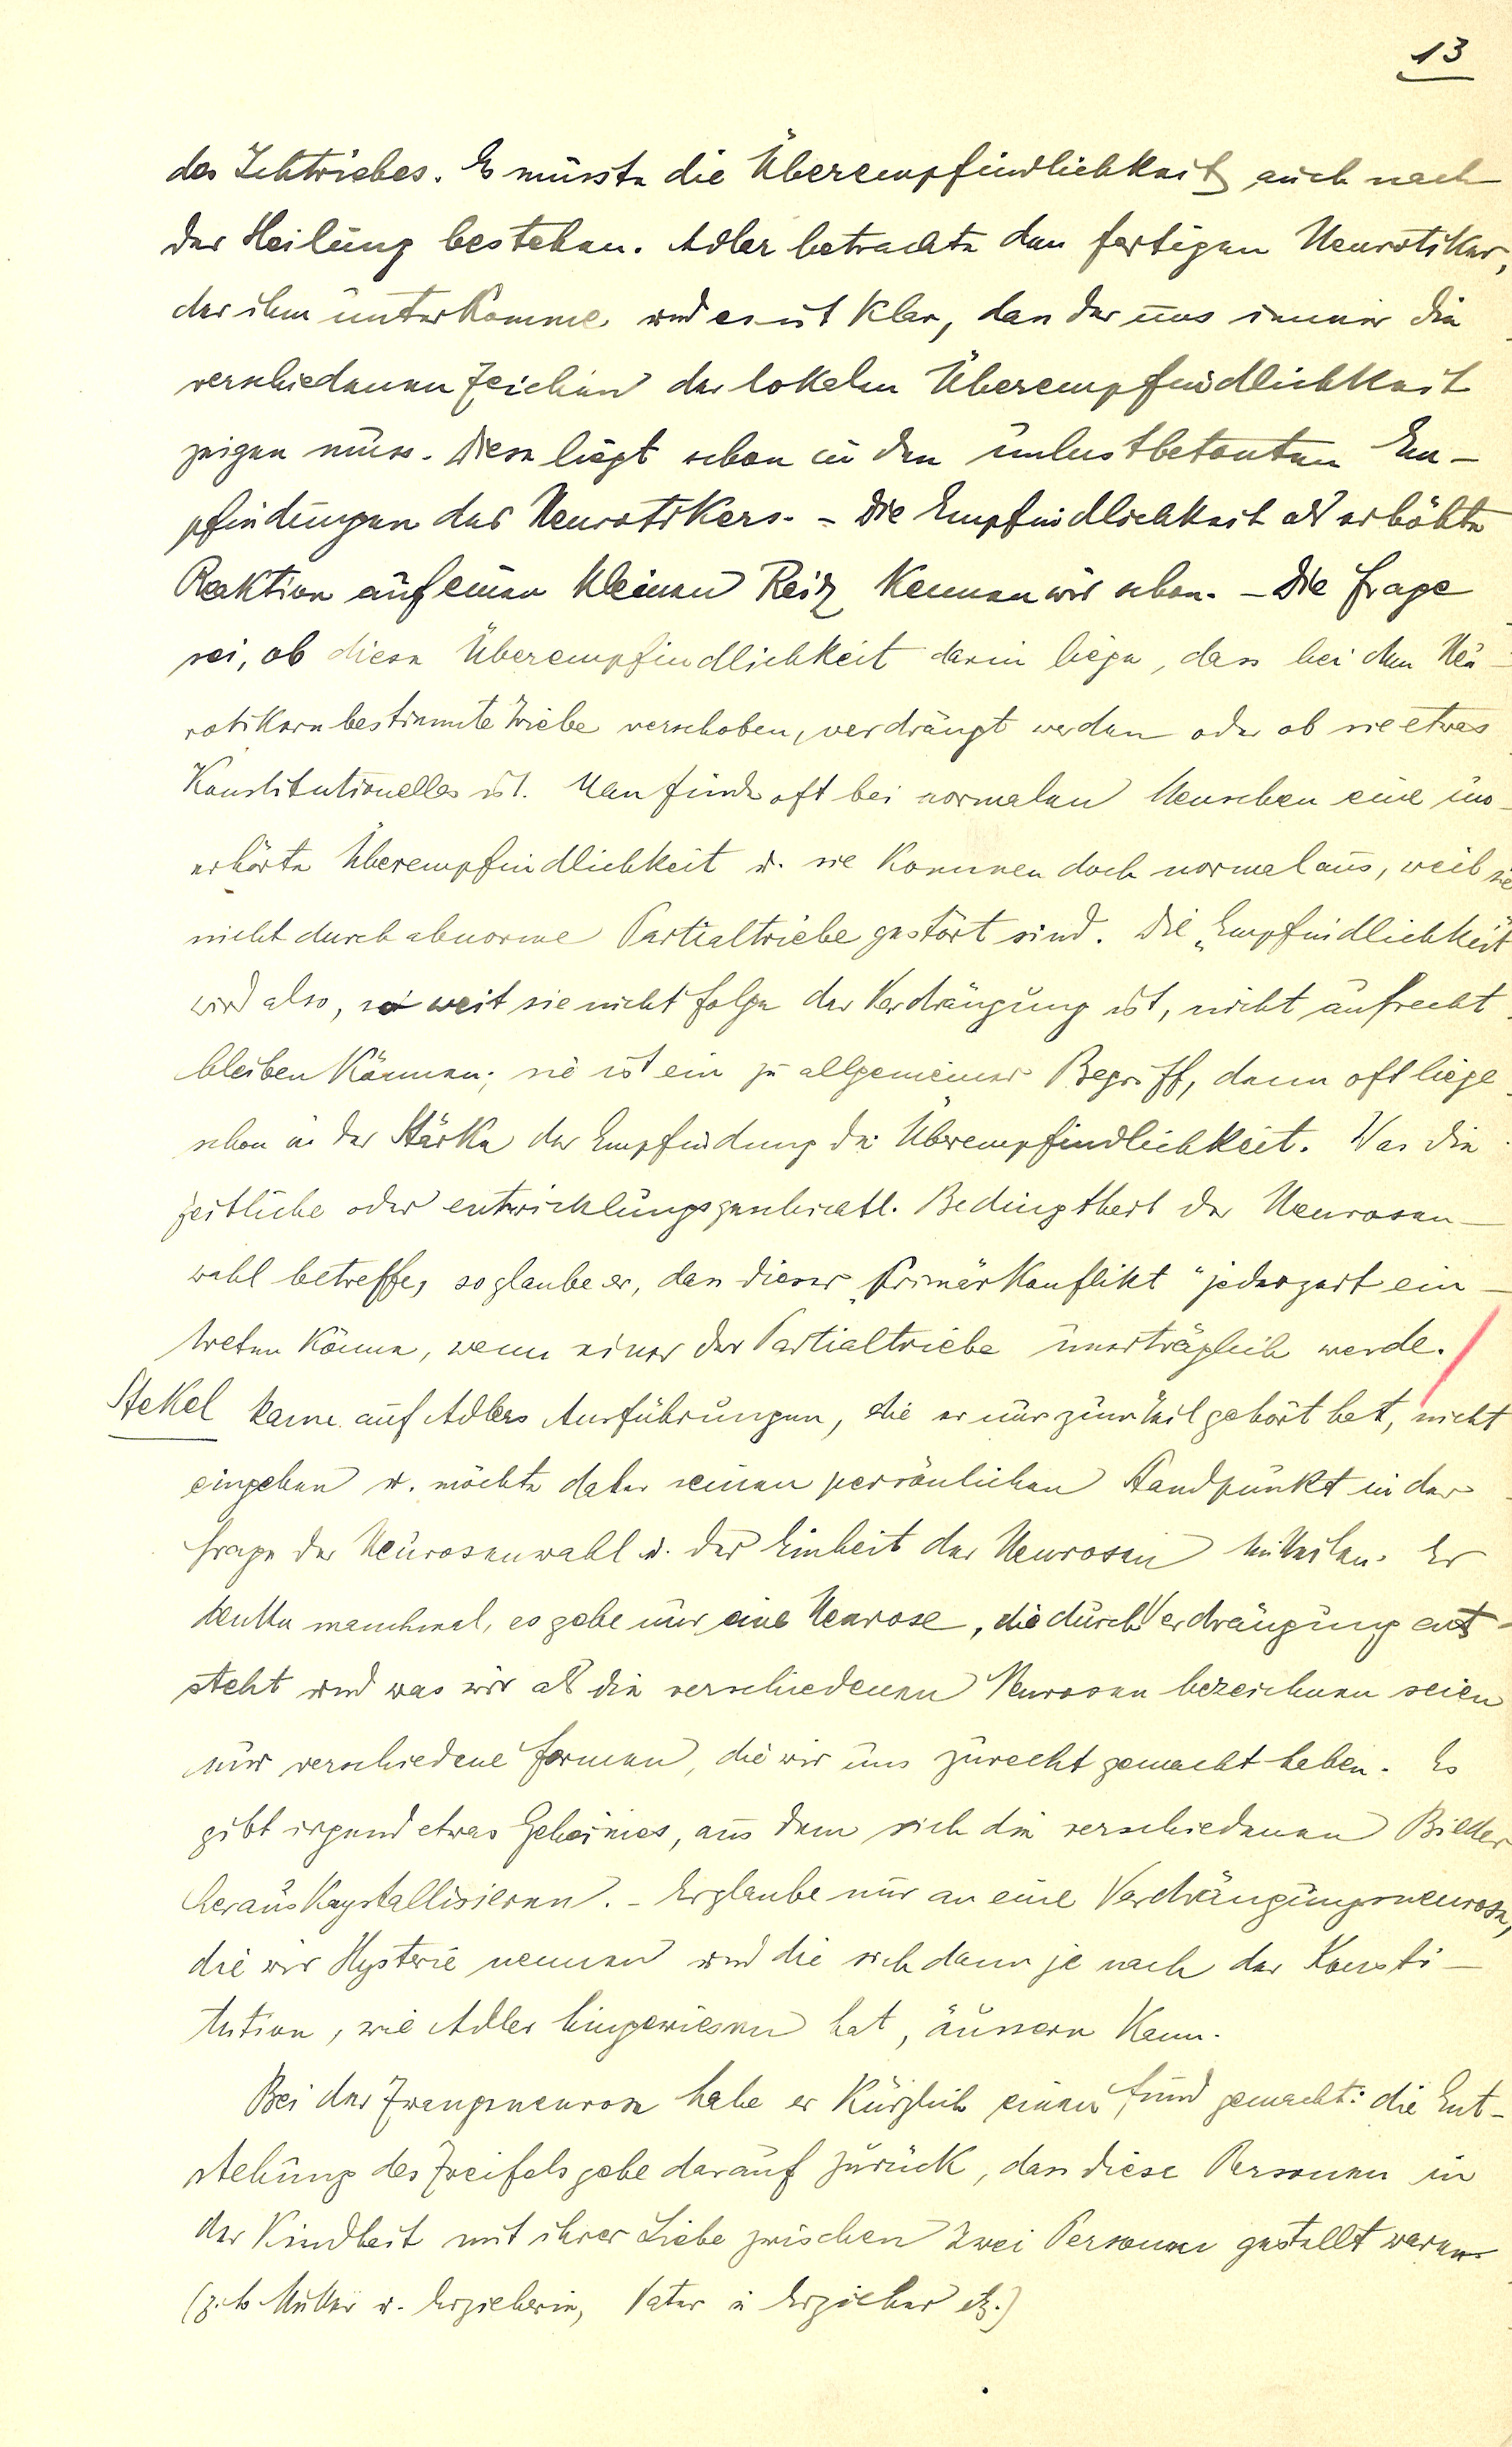 13
des Ichtriebes. Es müsste die Überempfindlichkeit auch nach
der Heilung bestehen. Adler betrachte den fertigen Neurotiker,
der ihm unterkomme und es ist klar, dass der uns immer die
verschiedenen Zeichen der lokalen Überempfindlichkeit
zeigen muss. Diese liegt schon in den unlustbetonten Em-
pfindungen des Neurotikers. – Die Empfindlichkeit als erhöhte
Reaktion auf einen kleinen Reiz kennen wir schon. – Die Frage
sei, ob diese Überempfindlichkeit darin liege, dass bei den Neu-
rotikern bestimmte Triebe verschoben, verdrängt werden oder ob sie etwas
Konstitutionelles ist. Man finde oft bei normalen Menschen eine un-
erhörte Überempfindlichkeit u. sie kommen doch normal aus, weil sie
nicht durch abnorme Partialtriebe gestört sind. Die „Empfindlichkeit"
wird also, so weit sie nicht Folge der Verdrängung ist, nicht aufrecht
bleiben können; sie ist ein zu allgemeiner Begriff, denn oft liege
schon in der Stärke der Empfindung die Überempfindlichkeit. Was die
zeitliche oder entwicklungsgeschichtl. Bedingtheit der Neurosen-
wahl betreffe, so glaube er, dass dieser „Primärkonflikt" jederzeit ein-
treten könne, wenn einer der Partialtriebe unerträglich werde.
Stekel kann auf Adlers Ausführungen, die er nur zum Teil gehört hat, nicht
eingehen u. möchte daher seinen persönlichen Standpunkt in der
Frage der Neurosenwahl u. der Einheit der Neurosen mitteilen. Er
denke manchmal, es gebe nur eine Neurose, die durch Verdrängung ent-
steht und was wir als die verschiedenen Neurosen bezeichnen seien
nur verschiedene Formen, die wir uns zurecht gemacht haben. Es
gibt irgend etwas Geheimes, aus dem sich die verschiedenen Bilder
herauskrystallisieren. – Er glaube nur an eine Verdrängungsneurose,
die wir Hysterie nennen und die sich dann je nach der Konsti-
tution, wie Adler hingewiesen hat, äussern kann.
Bei der Zwangsneurose habe er kürzlich einen Fund gemacht: die Ent-
stehung des Zweifels gehe darauf zurück, dass diese Personen in
der Kindheit mit ihrer Liebe zwischen zwei Personen gestellt waren
(z. b Mutter u. Erzieherin, Vater u Erzieher etz.)